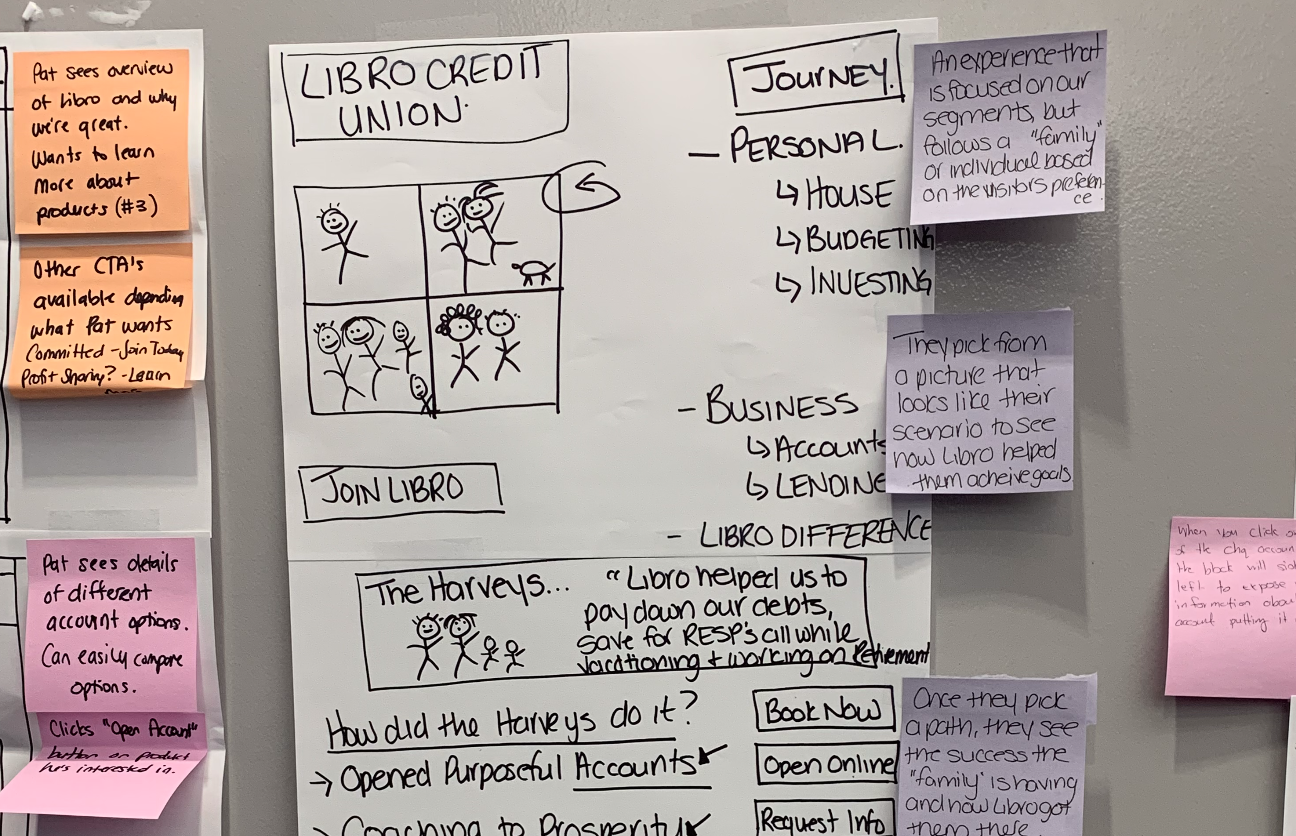 Pat sees overview
of Libro and why
we're great.
Wants to learn
more about
products (#3)
Other CTA's
available depending
what Pat wants
Committed - Join Today
Profit Sharing? - Learn
Pat sees details
of different
account options.
Can easily compare
options.
Clicks "Open Account"
button on product
he's interested in.
LIBRO CREDIT
UNION.
JOIN LIBRO
JOURNEY.
- PERSONAL.
↳ HOUSE
↳ BUDGETING
↳ INVESTING
- BUSINESS
↳ ACCOUNTS
↳ LENDING
- LIBRO DIFFERENCE
An experience that
is focused on our
segments, but
follows a "family"
or individual based
on the visitors preferen-
ce.
They pick from
a picture that
looks like their
scenario to see
how Libro helped
them acheive goals
The Harveys...
"Libro helped us to
pay down our debts,
save for RESP's all while
vacationing + working on Retirement
How did the Harveys do it?
→ Opened Purposeful Accounts
→ Coaching to Prosperity
Book Now
Open Online
Request Info
Once they pick
a path, they see
the success the
"family" is having
and how Libro got
them there
When you click
of the chq account
the block will
left to expose
information about
account putting it